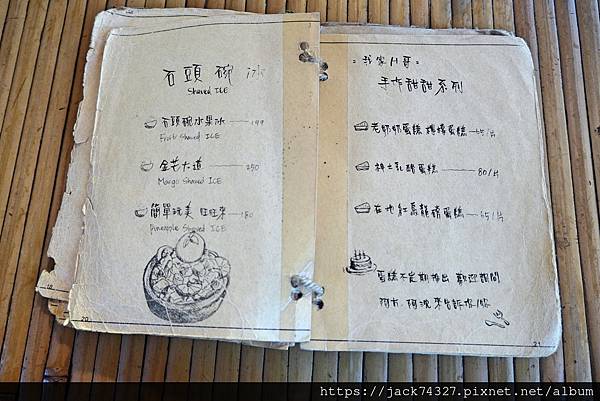 石頭碗 冰
Shaved ICE
石頭碗水果冰 199
Fruit Shaved ICE
金芒大道 250
Mango Shaved ICE
簡單玩美 旺旺來 180
pineapple Shaved ICE
20
手作甜甜系列
老奶奶蛋糕 檸檬蛋糕 65/片
紳士乳酪蛋糕 80/片
在地紅烏龍磅蛋糕 65/片
蛋糕不定期推出 歡迎詢問
21
https://jack74327.pixnet.net/album